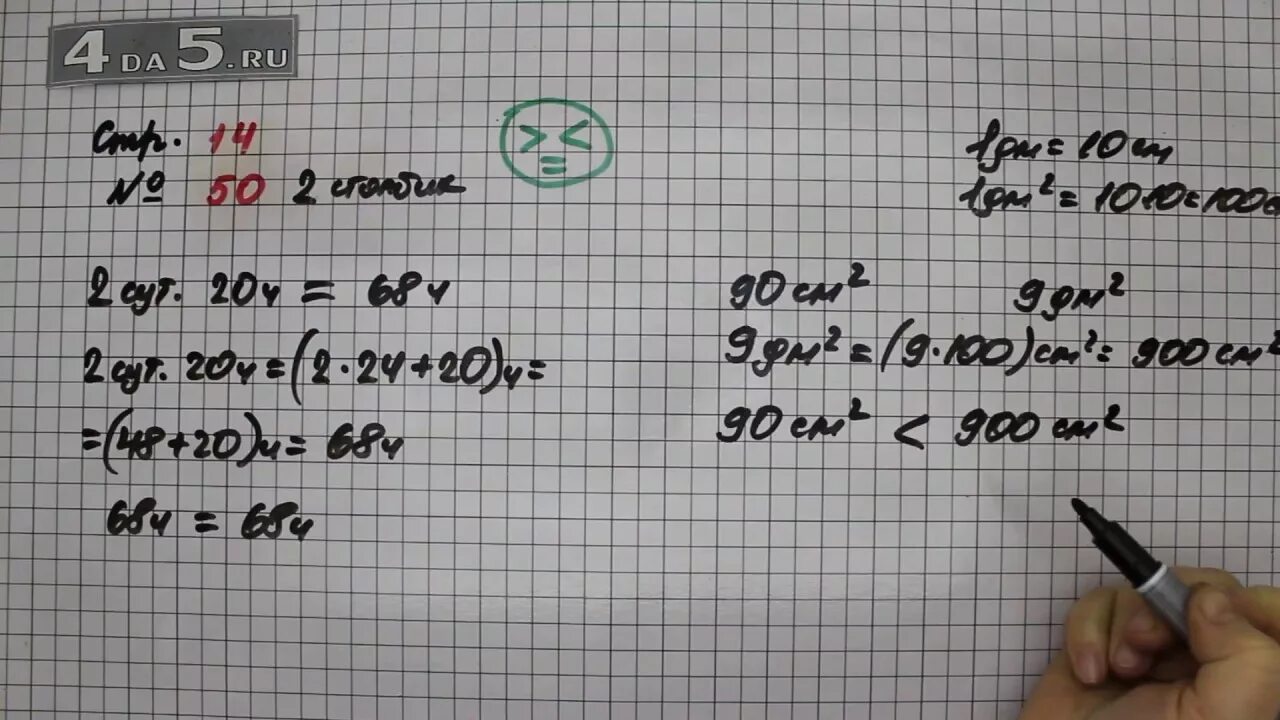 4DA5.RU
Стр. 14
№ 50 2 столбик
> <
=
1дм = 10 см
1дм² = 10·10 = 100с
2 сут. 20ч = 68ч
2 сут. 20ч = (2·24+20)ч =
= (48+20)ч = 68ч
68ч = 68ч
90 см² 9 дм²
9 дм² = (9·100) см² = 900 см²
90 см² < 900 см²